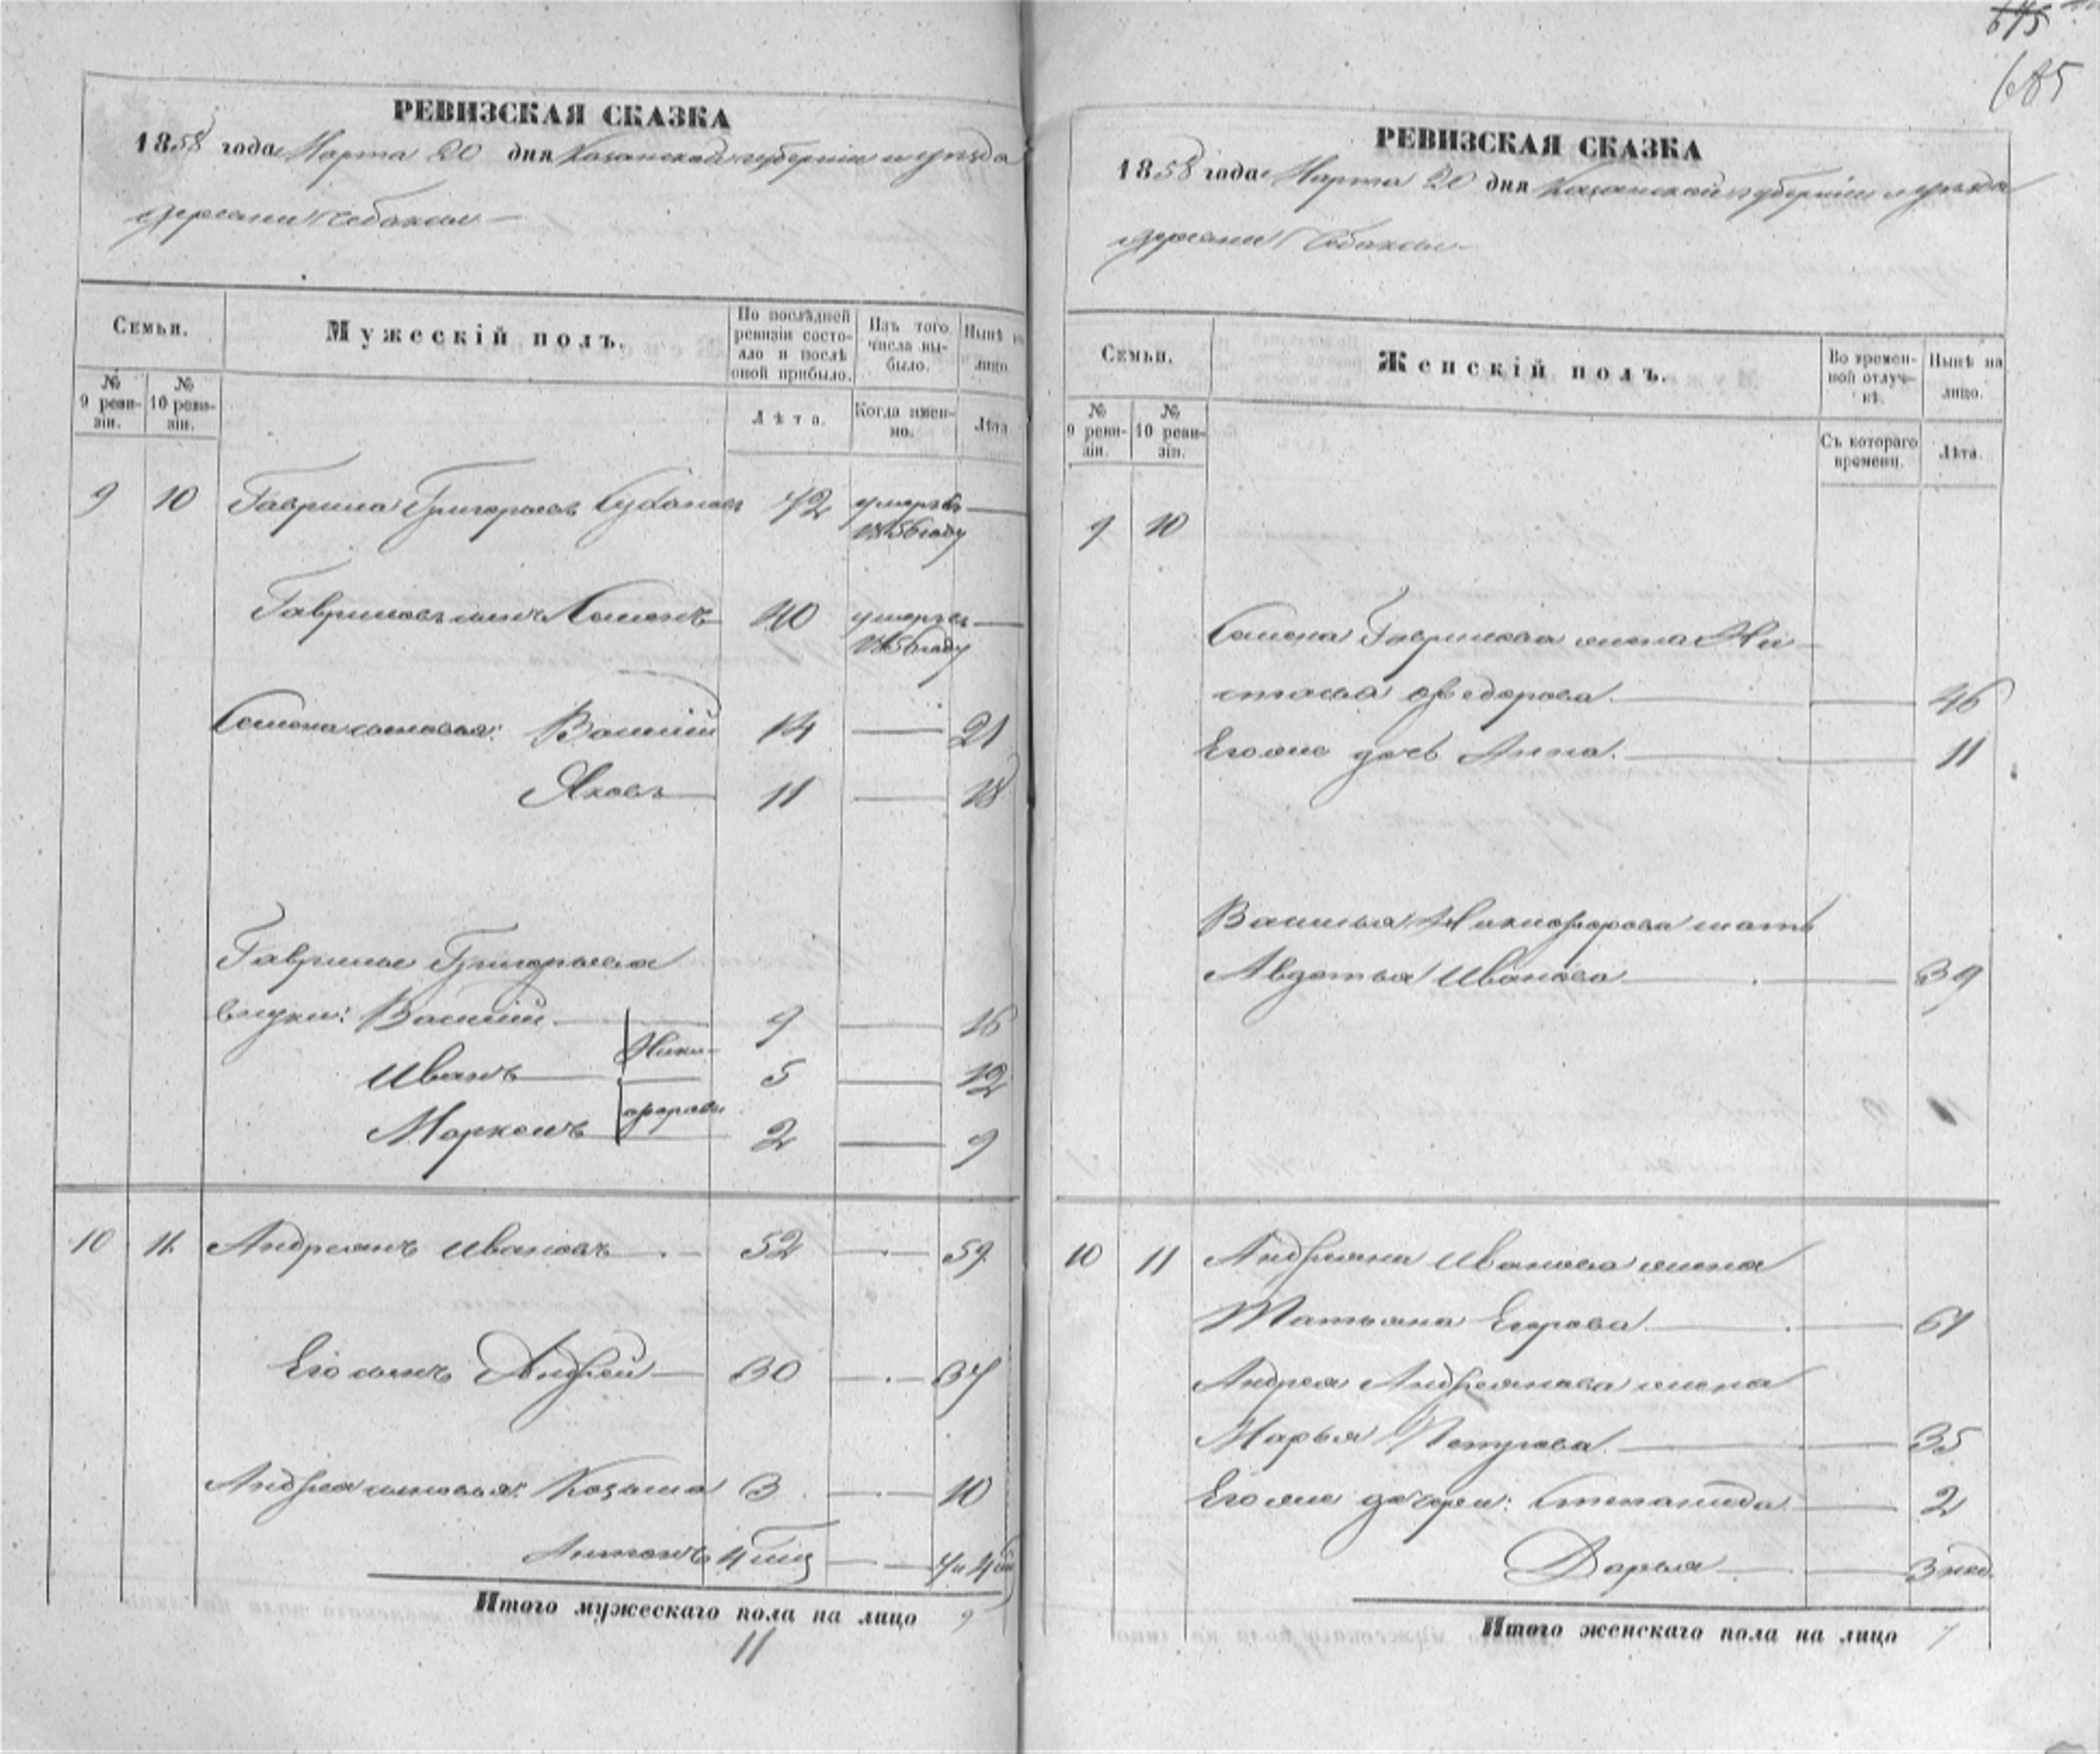 675
685
РЕВИЗСКАЯ СКАЗКА
1858 года Марта 20 дня Казанской губерніи и уѣзда
деревни Чебакси
Семьи.
Мужескій полъ.
По послѣдней ревизіи состояло и послѣ оной прибыло.
Изъ того числа выбыло.
Нынѣ на лицо.
№ 9 ревизіи.
№ 10 ревизіи.
Лѣта.
Когда именно.
Лѣта
9 10 Гаврила Григорьевъ 72 умеръ въ
1856 году
Гавриловъ сынъ Семенъ 40 умеръ въ
1856 году
Семена сыновья: Василій 14 — 21
Яковъ 11 — 18
Гаврилы Григорьева
внуки: Василій 9 — 16
Ники-
Иванъ 5 — 12
форовы
Маркелъ 2 — 9
10 11. Андреянъ Ивановъ 52 — 59
Его сынъ Андрей 30 — 37
Андрея сыновья: Козьма 3 — 10
Антонъ 4 мѣц — 7 и 4 м
Итого мужескаго пола на лицо 9
11
РЕВИЗСКАЯ СКАЗКА
1858 года Марта 20 дня Казанской губерніи и уѣзда
деревни Чебакси
Семьи.
Женскій полъ.
Во временной отлучкѣ.
Нынѣ на лицо.
№ 9 ревизіи.
№ 10 ревизіи.
Съ котораго времени.
Лѣта.
9 10
Семена Гаврилова жена На-
стасья Федорова 46
Его же дочь Анна. 11
Василья Никифорова мать
Авдотья Иванова 39
10 11 Андреяна Иванова жена
Татьяна Егорова 61
Андрея Андреянова жена
Марья Петрова 35
Его же дочери: Степанида 2
Дарья 3 нед.
Итого женскаго пола на лицо 7